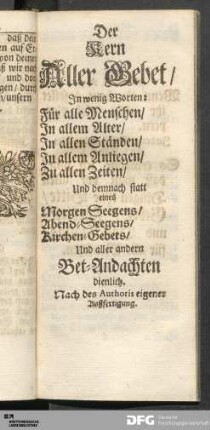 daß den
en auf Er
von deine
ß wir nach
und dor
gen/ dur
unsern
Der
Kern
Aller Gebet/
In wenig Worten:
Für alle Menschen/
In allem Alter/
In allen Ständen/
In allem Anliegen/
Zu allen Zeiten/
Und demnach statt
eines
Morgen Seegens/
Abend-Seegens/
Kirchen-Gebets/
Und aller andern
Bet-Andachten
dienlich.
Nach des Authoris eigener
Außfertigung.
DFG Deutsche
Forschungsgemeinschaft